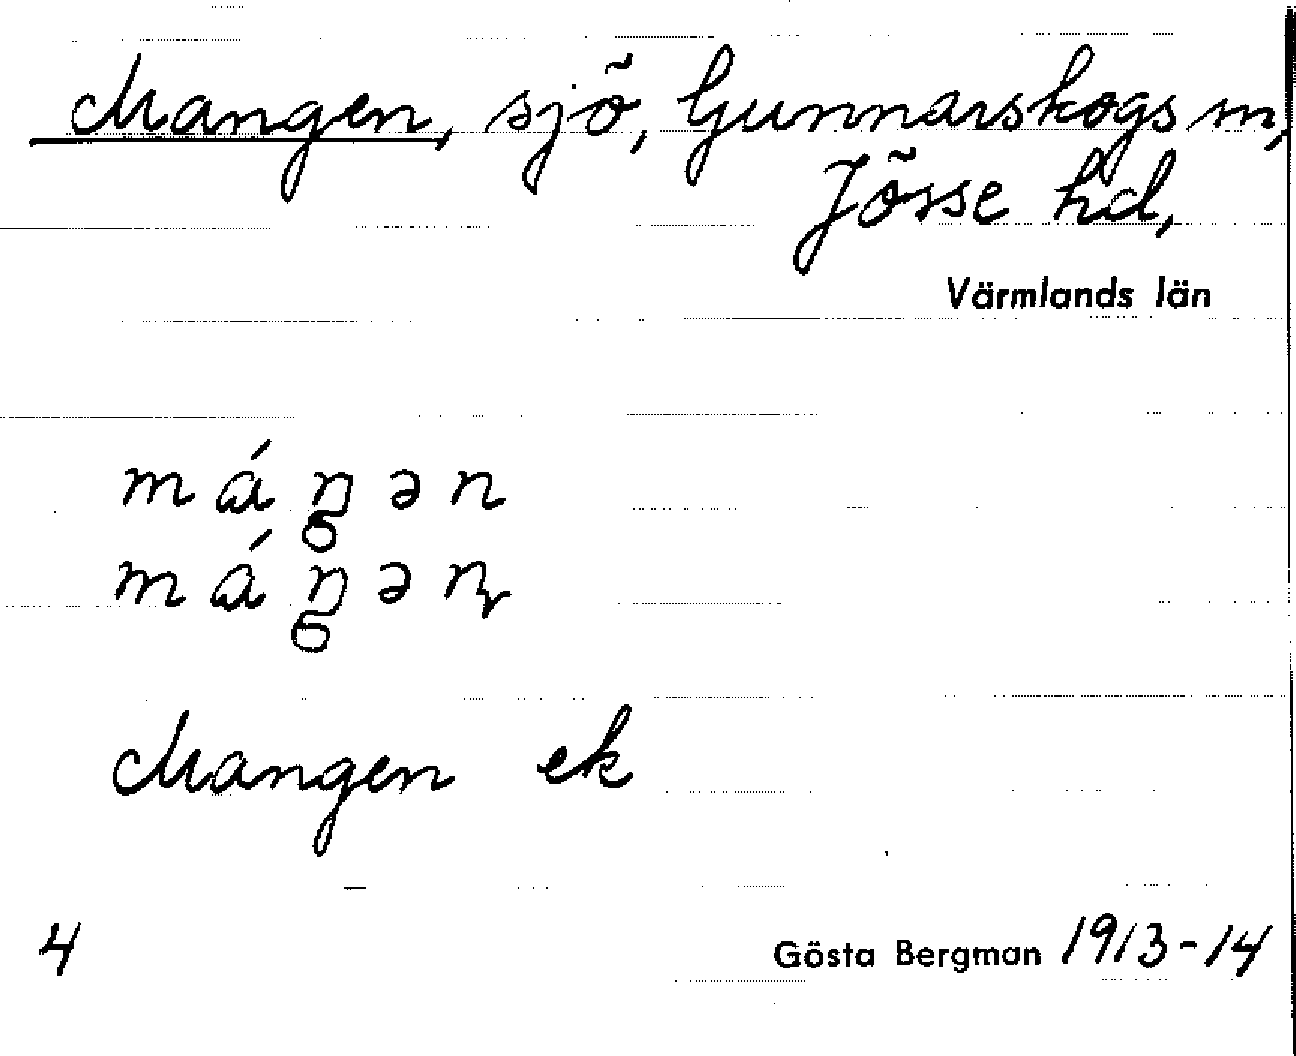 Mangen, sjö, Gunnarskogs sn,
Jösse hd,
Värmlands län
máŋən
máŋəɲ
Mangen ek
4
Gösta Bergman 1913-14